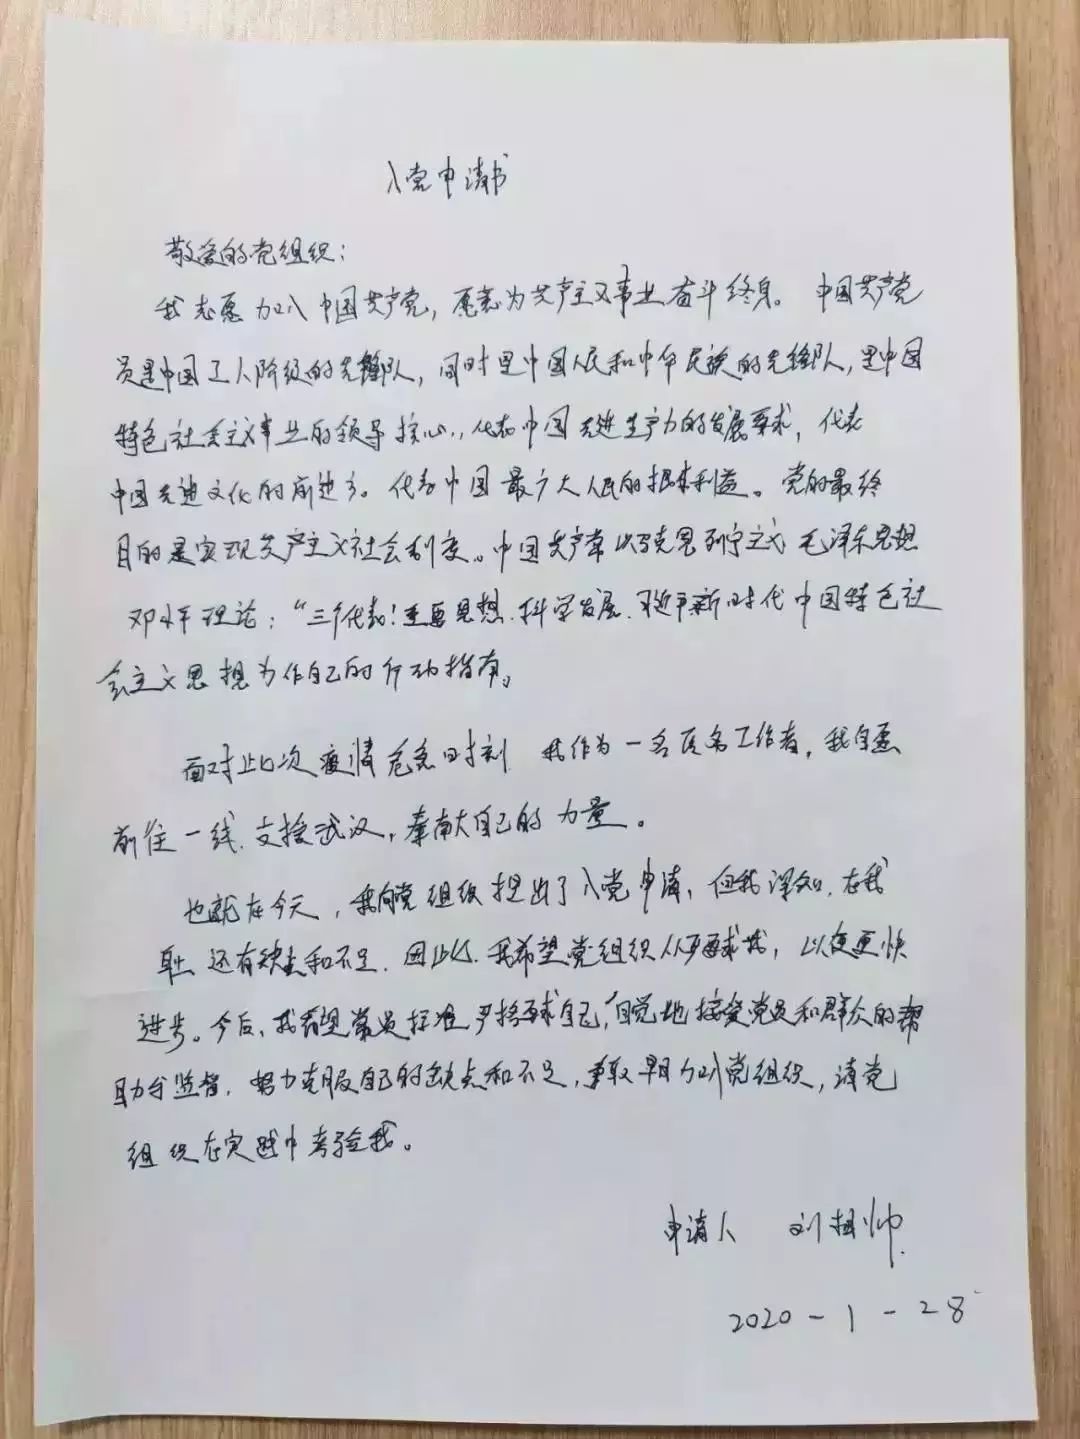 入党申请书
敬爱的党组织：
我志愿加入中国共产党，愿意为共产主义事业奋斗终身。中国共产党
员是中国工人阶级的先锋队，同时是中国人民和中华民族的先锋队，是中国
特色社会主义事业的领导核心，代表中国先进生产力的发展要求，代表
中国先进文化的前进方。代表中国最广大人民的根本利益。党的最终
目的是实现共产主义社会制度。中国共产党以马克思列宁主义 毛泽东思想
邓小平理论："三个代表！重要思想.科学发展.习近平新时代中国特色社
会主义思想为作自己的行动指南。
面对此次疫情危急时刻 我作为一名医务工作者，我自愿
前往一线.支援武汉，奉献自己的力量。
也就在今天，我向党组织提出了入党申请，但我深知.在我
身上还有缺点和不足.因此.我希望党组织从严要求我，以便更快
进步。今后、我希望党员标准严格要求自己，自觉地接受党员和群众的帮
助与监督.努力克服自己的缺点和不足，争取早日加入党组织，请党
组织在实践中考验我。
申请人 刘相帅.
2020-1-28